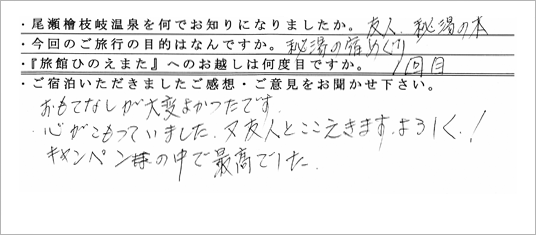 ・尾瀬檜枝岐温泉を何でお知りになりましたか。友人、秘湯の本
・今回のご旅行の目的はなんですか。秘湯の宿めぐり
・『旅館ひのえまた』へのお越しは何度目ですか。1回目
・ご宿泊いただきましたご感想・ご意見をお聞かせ下さい。
おもてなしが大変よかったです。
心がこもっていました。又友人とここえきます。よろしく!
キャンペン の中で最高でした。